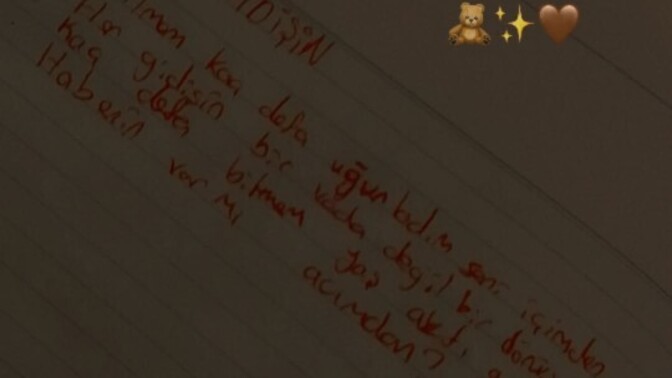 IDİŞİN
ilmem kaç defa uğurladım seni içimden
Her gidişin bir veda değil bir
Kaç defa bilmem yaş aktı
Haberin var mı acımdan?